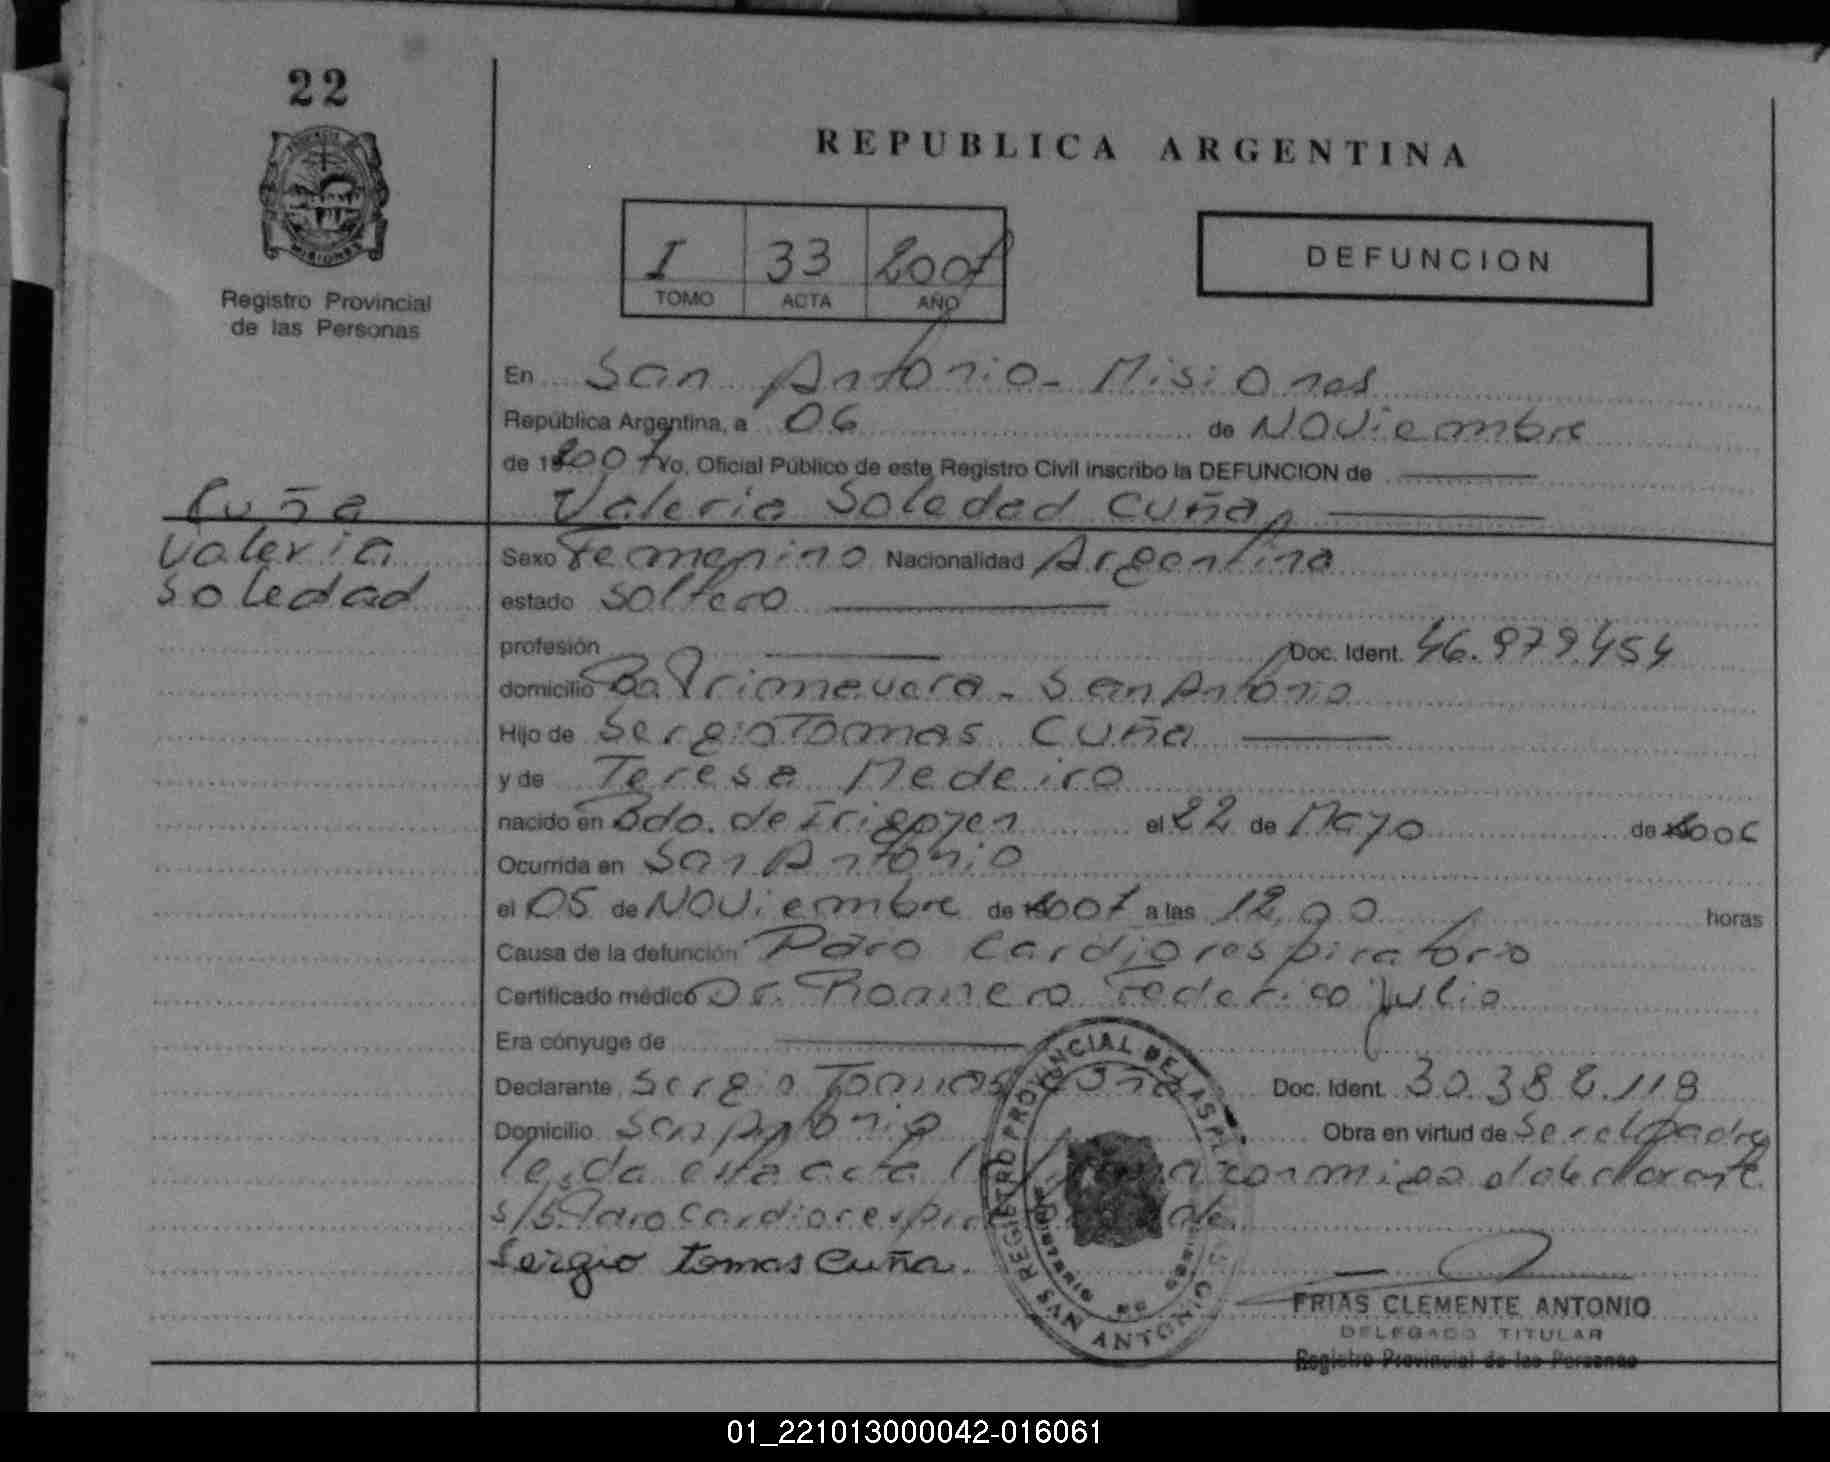 22
PROVINCIA DE MISIONES
Registro Provincial
de las Personas
REPUBLICA ARGENTINA
I 33 2007
TOMO ACTA AÑO
DEFUNCION
En San Antonio - Misiones
República Argentina, a 06 de Noviembre
de 2007 Yo, Oficial Público de este Registro Civil inscribo la DEFUNCION de
Valeria Soledad Cuña
Cuña
Valeria
Soledad
Sexo Femenino Nacionalidad Argentina
estado soltero
profesión Doc. Ident. 46.979.454
domicilio Bo. Primavera - San Antonio
Hijo de Sergio Tomas Cuña
y de Teresa Medeiro
nacido en Bdo. de Irigoyen el 22 de Mayo de 2006
Ocurrida en San Antonio
el 05 de Noviembre de 2007 a las 12,00 horas
Causa de la defunción Paro Cardiorespiratorio
Certificado médico Dr. Romero Federico Julio
Era cónyuge de
Declarante Sergio Tomas Cuña Doc. Ident. 30.38 .118
Domicilio San Antonio Obra en virtud de Ser el padre
Leida esta acta la firma conmigo el declarante
s/b Paro Cardiorespiratorio vale
Sergio tomas Cuña.
REGISTRO PROVINCIAL DE LAS PERSONAS
SAN ANTONIO
MISIONES
FRIAS CLEMENTE ANTONIO
DELEGADO TITULAR
Registro Provincial de las Personas
01_221013000042-016061